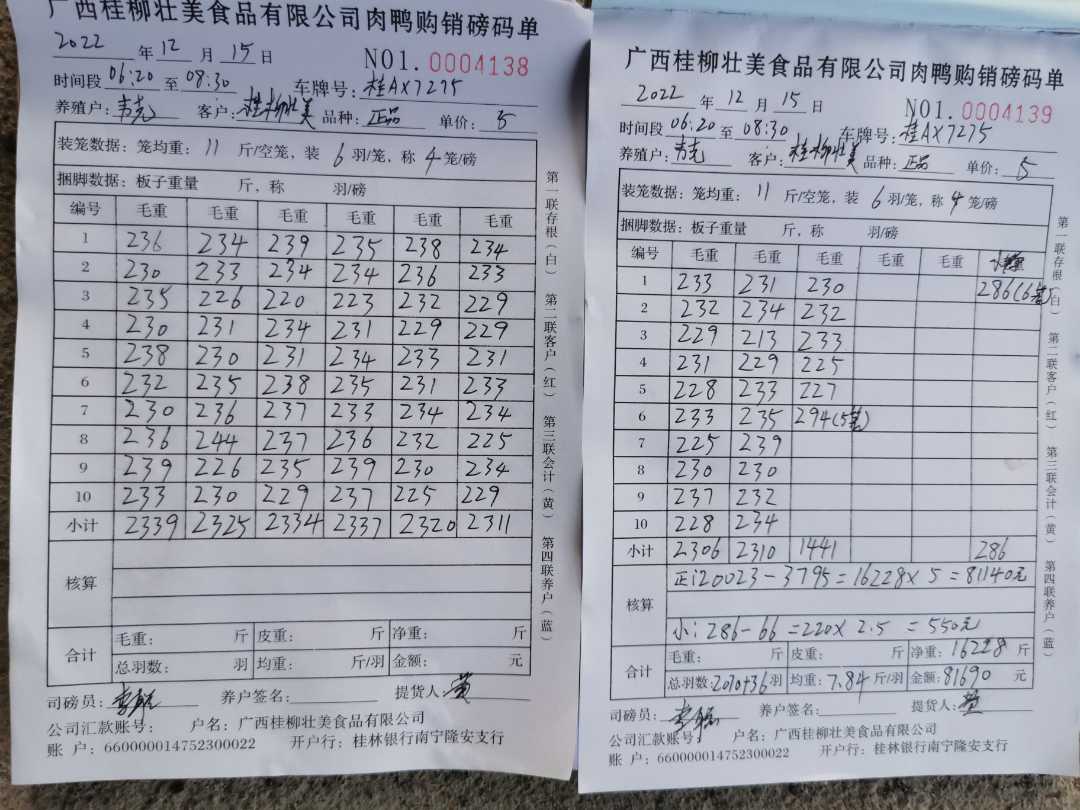 广西桂柳壮美食品有限公司肉鸭购销磅码单
2022 年 12 月 15 日 NO1. 0004138
时间段 06:20 至 08:30 车牌号: 桂AX7275
养殖户: 韦克 客户: 桂柳壮美 品种: 正品 单价: 5
装笼数据: 笼均重: 11 斤/空笼, 装 6 羽/笼, 称 4 笼/磅
捆脚数据: 板子重量 斤, 称 羽/磅
编号 毛重 毛重 毛重 毛重 毛重 毛重
1 236 234 239 235 238 234
2 230 233 234 234 236 233
3 235 226 220 223 232 229
4 230 231 234 231 229 229
5 238 230 231 234 233 231
6 232 235 238 235 231 233
7 230 236 237 233 234 234
8 236 244 237 236 232 225
9 239 226 235 239 230 234
10 233 230 229 237 225 229
小计 2339 2325 2334 2337 2320 2311
核算
合计 毛重: 斤 皮重: 斤 净重: 斤
总羽数: 羽 均重: 斤/羽 金额: 元
司磅员: 养户签名: 提货人: 黄
公司汇款账号: 户名: 广西桂柳壮美食品有限公司
账 户: 660000014752300022 开户行: 桂林银行南宁隆安支行
第一联存根(白) 第二联客户(红) 第三联会计(黄) 第四联养户(蓝)
广西桂柳壮美食品有限公司肉鸭购销磅码单
2022 年 12 月 15 日 NO1. 0004139
时间段 06:20 至 08:30 车牌号: 桂AX7275
养殖户: 韦克 客户: 桂柳壮美 品种: 正品 单价: 5
装笼数据: 笼均重: 11 斤/空笼, 装 6 羽/笼, 称 4 笼/磅
捆脚数据: 板子重量 斤, 称 羽/磅
编号 毛重 毛重 毛重 毛重 毛重
1 233 231 230 286(6笼)
2 232 234 232
3 229 213 233
4 231 229 225
5 228 233 227
6 233 235 294(5笼)
7 225 239
8 230 230
9 237 232
10 228 234
小计 2306 2310 1441 286
核算 正:20023-3795=16228×5=81140元
小:286-66=220×2.5=550元
合计 毛重: 斤 皮重: 斤 净重: 16228 斤
总羽数: 2070+36 羽 均重: 7.84 斤/羽 金额: 81690 元
司磅员: 养户签名: 提货人: 黄
公司汇款账号: 户名: 广西桂柳壮美食品有限公司
账 户: 660000014752300022 开户行: 桂林银行南宁隆安支行
第一联存根(白) 第二联客户(红) 第三联会计(黄) 第四联养户(蓝)